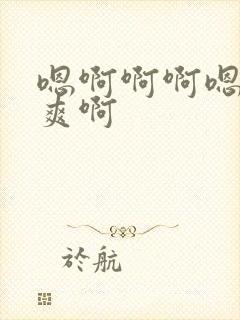 嗯啊啊啊嗯
爽啊
於航